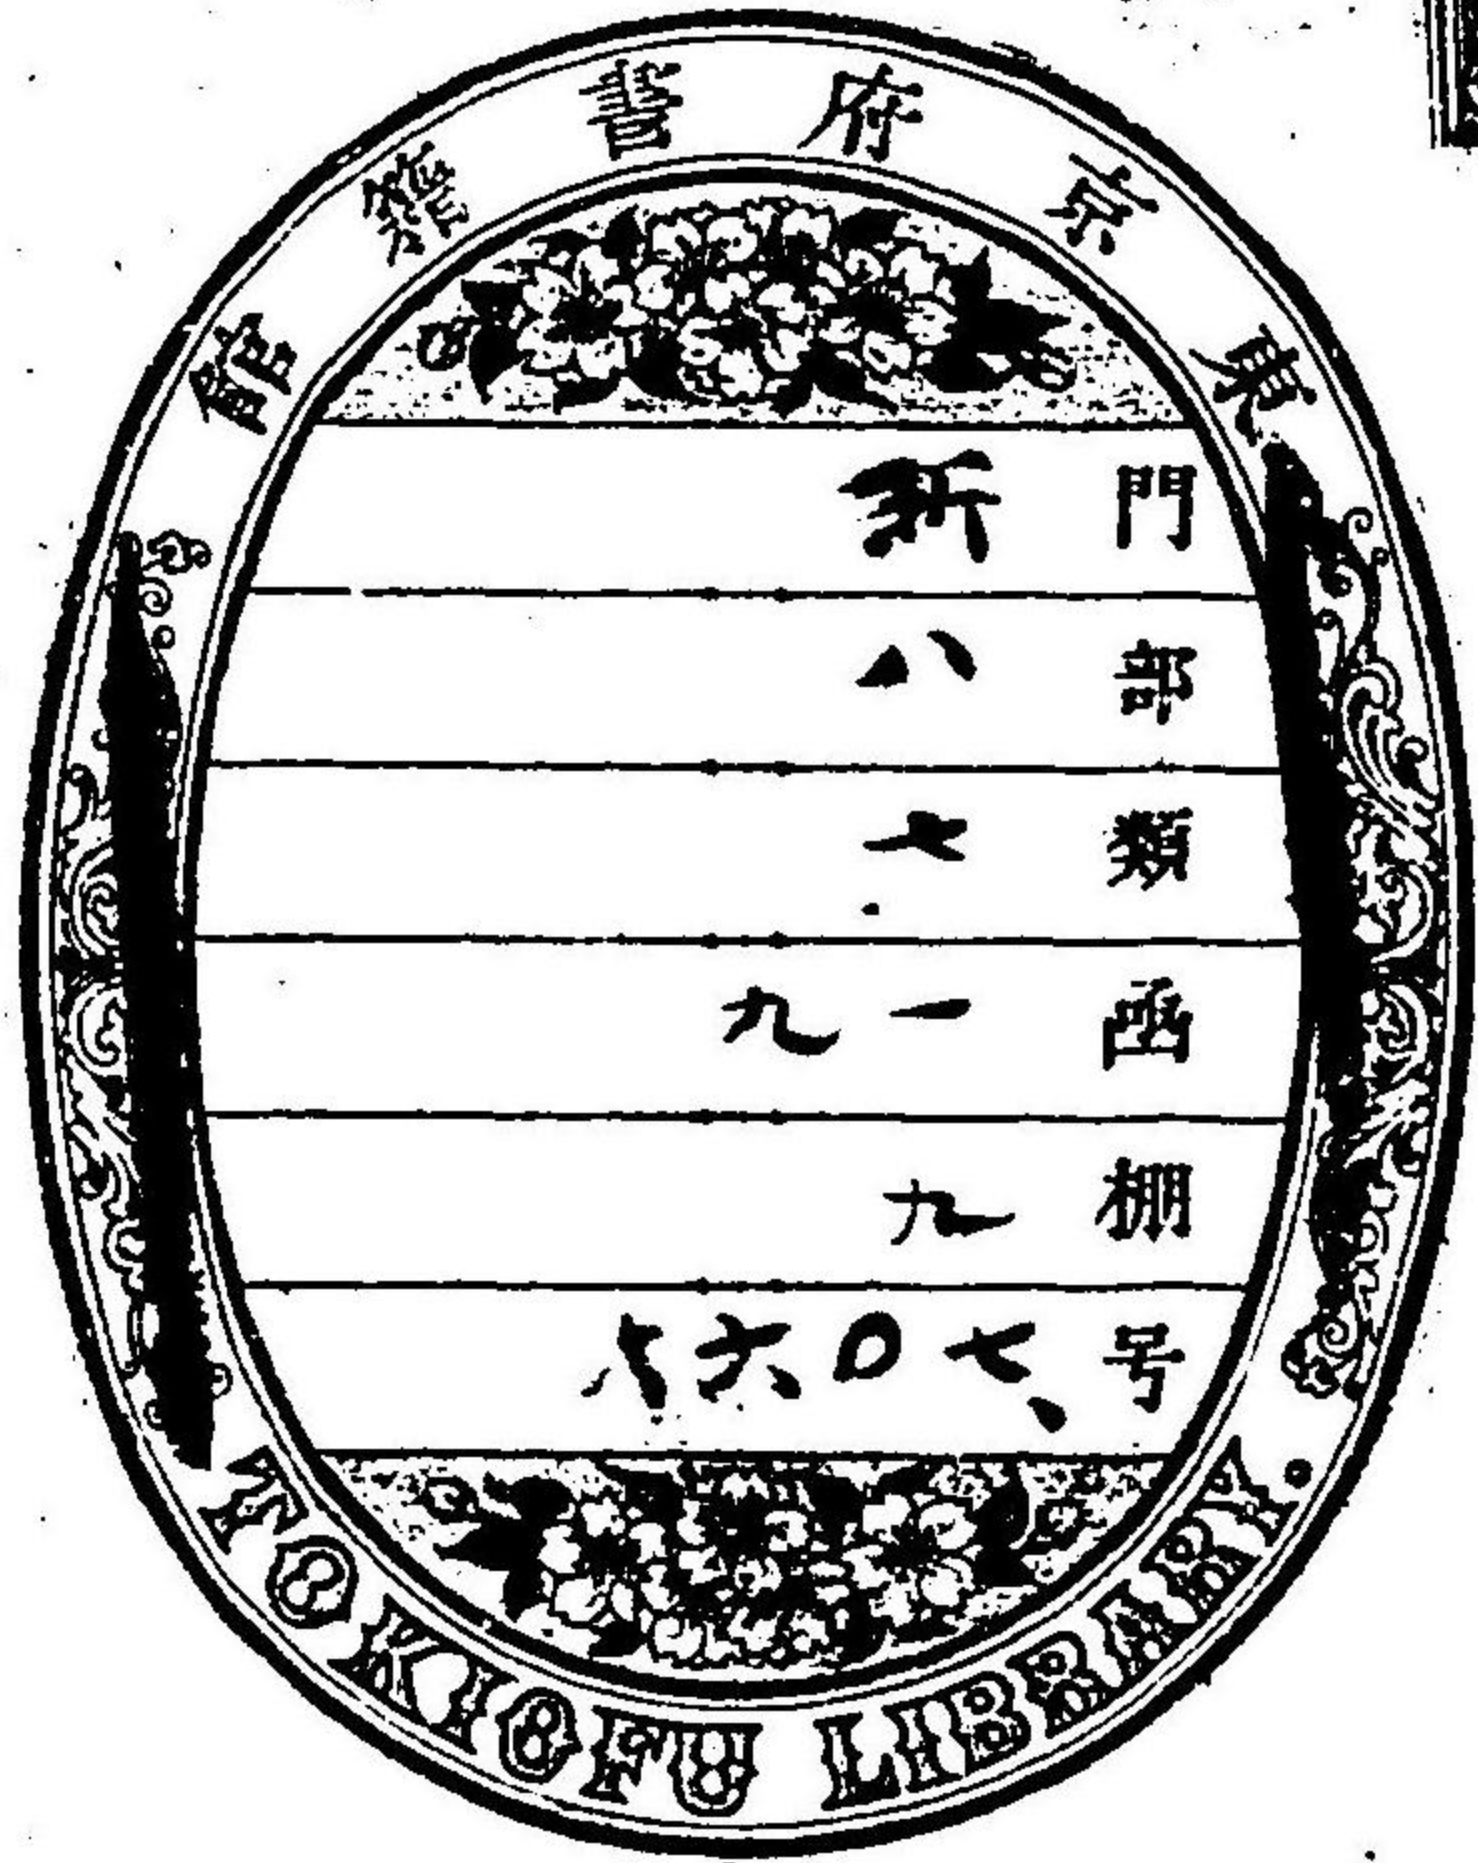 東京府書籍館
門 新
部 八
類 七
凾 一九
棚 九
号 七〇六八
TOKIOFU LIBRARY.